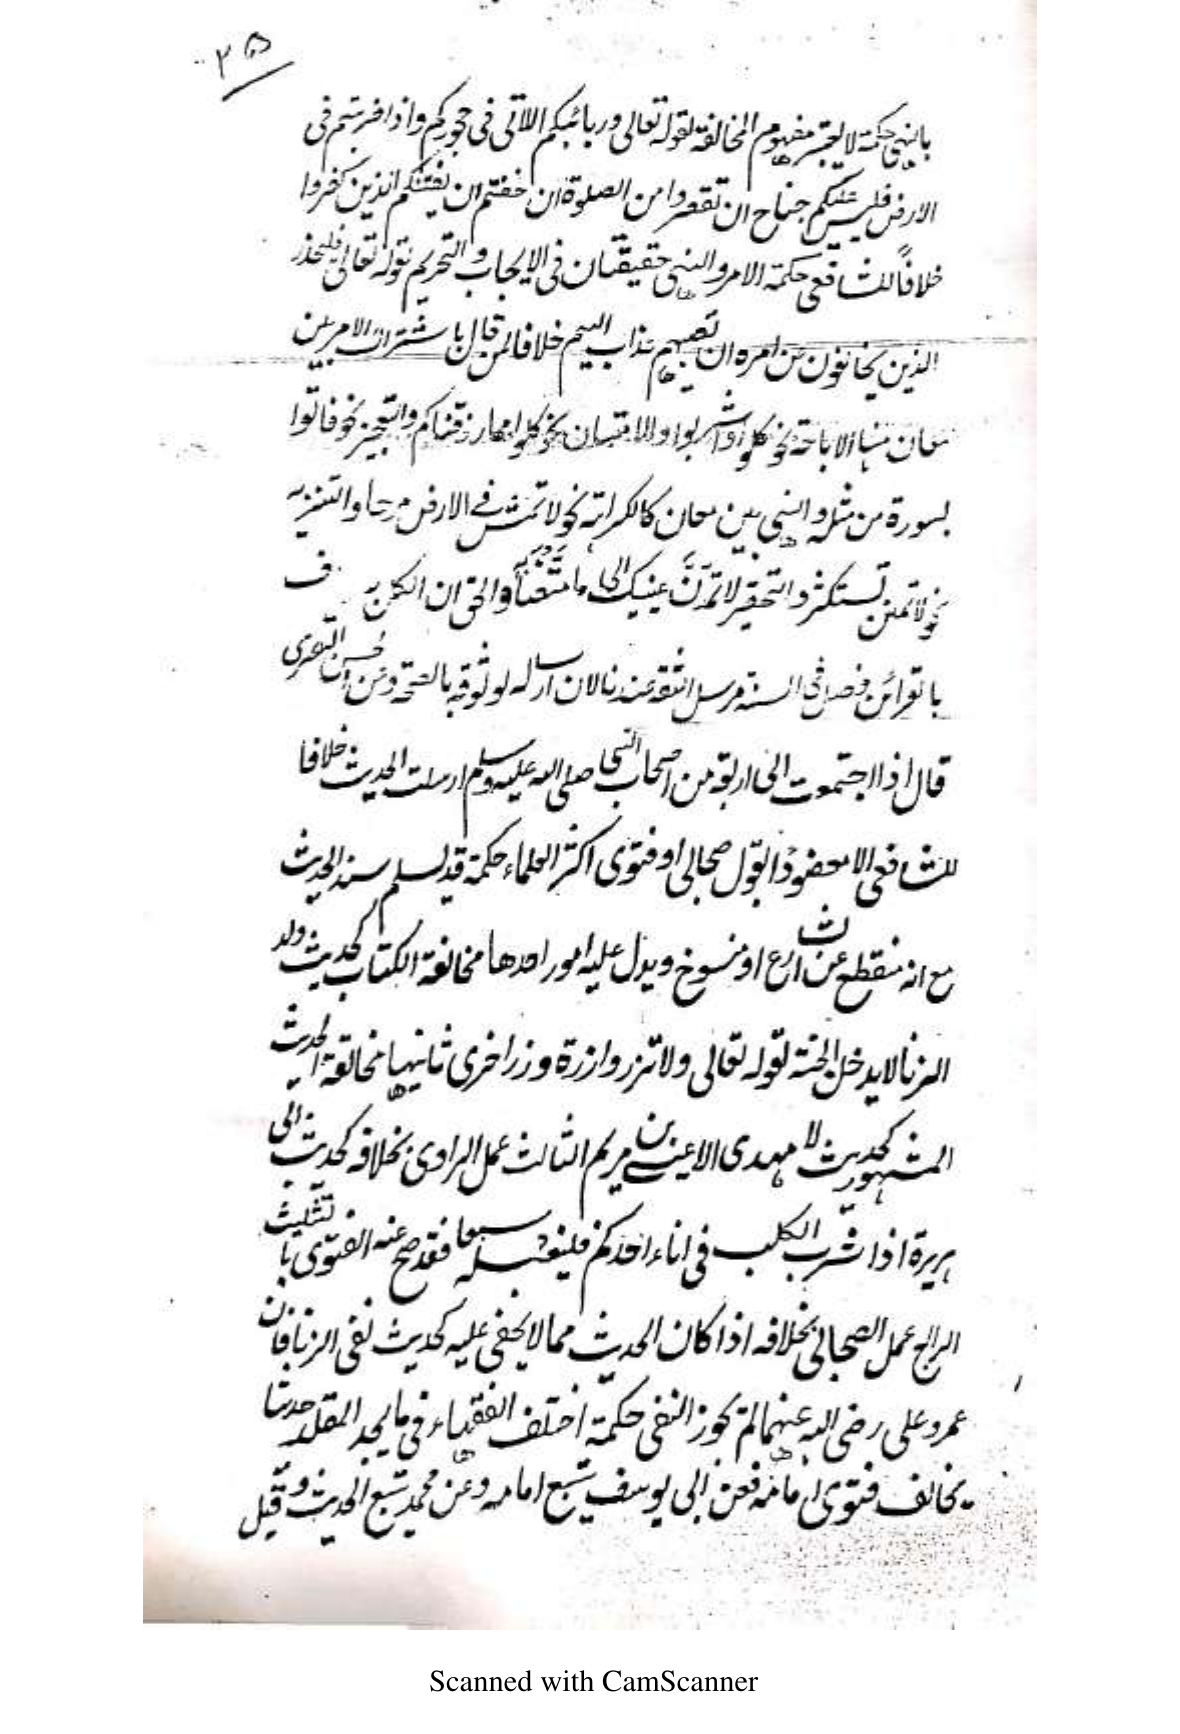 ٣٥
بالنهى حكمة لا يعتبر مفهوم المخالفة لقوله تعالى وربائبكم اللاتى فى حجوركم واذا ضربتم فى
الارض فليس عليكم جناح ان تقصروا من الصلوة ان خفتم ان يفتنكم الذين كفروا
خلافاً للشافعى حكمة الامر والنهى حقيقتان فى الايجاب والتحريم لقوله تعالى فليحذر
الذين يخالفون عن امره ان تصيبهم عذاب اليم خلافا لمن قال باشتراك الامر بين
معان منها الاباحة نحو كلوا واشربوا والامتنان نحو كلوا مما رزقناكم والتعجيز نحو فاتوا
بسورة من مثله والنهى بين معان كالكراهة نحو لا تمش فى الارض مرحا والتنزيه
نحو لا تمنن تستكثر والتحقير لا تمدّنّ عينيك الى ما متعنا به والحق ان الكل
بالقرائن فصل فى السنة مرسل الثقة عندنا لان ارساله لوثوقه بالصحة وعن الحسن البصرى
قال اذا اجتمعت الى اربعة من اصحاب النبى صلى الله عليه وسلم ارسلت الحديث خلافا
للشافعى الا معضودا بقول صحابى او فتوى اكثر العلماء حكمة قد يسلم سند الحديث
مع انه منقطع عن الشارع او منسوخ ويدل عليه امور احدها مخالفة الكتاب كحديث ولد
الزنا لا يدخل الجنة لقوله تعالى ولا تزر وازرة وزر اخرى ثانيها مخالفة الحديث
المشهور كحديث لا مهدى الا عيسى بن مريم الثالث عمل الراوى بخلافه كحديث ابى
هريرة اذا شرب الكلب فى اناء احدكم فليغسله سبعا فقد صح عنه الفتوى بالتثليث
الرابع عمل الصحابى بخلافه اذا كان الحديث مما لا يخفى عليه كحديث نفى الزنا فان
عمر وعلى رضى الله عنهما لم يجوز النفى حكمة اختلف الفقهاء فى ما يجد المقلد حديثا
يخالف فتوى امامه فعن ابى يوسف يتبع امامه وعن محمد يتبع الحديث وقيل
Scanned with CamScanner